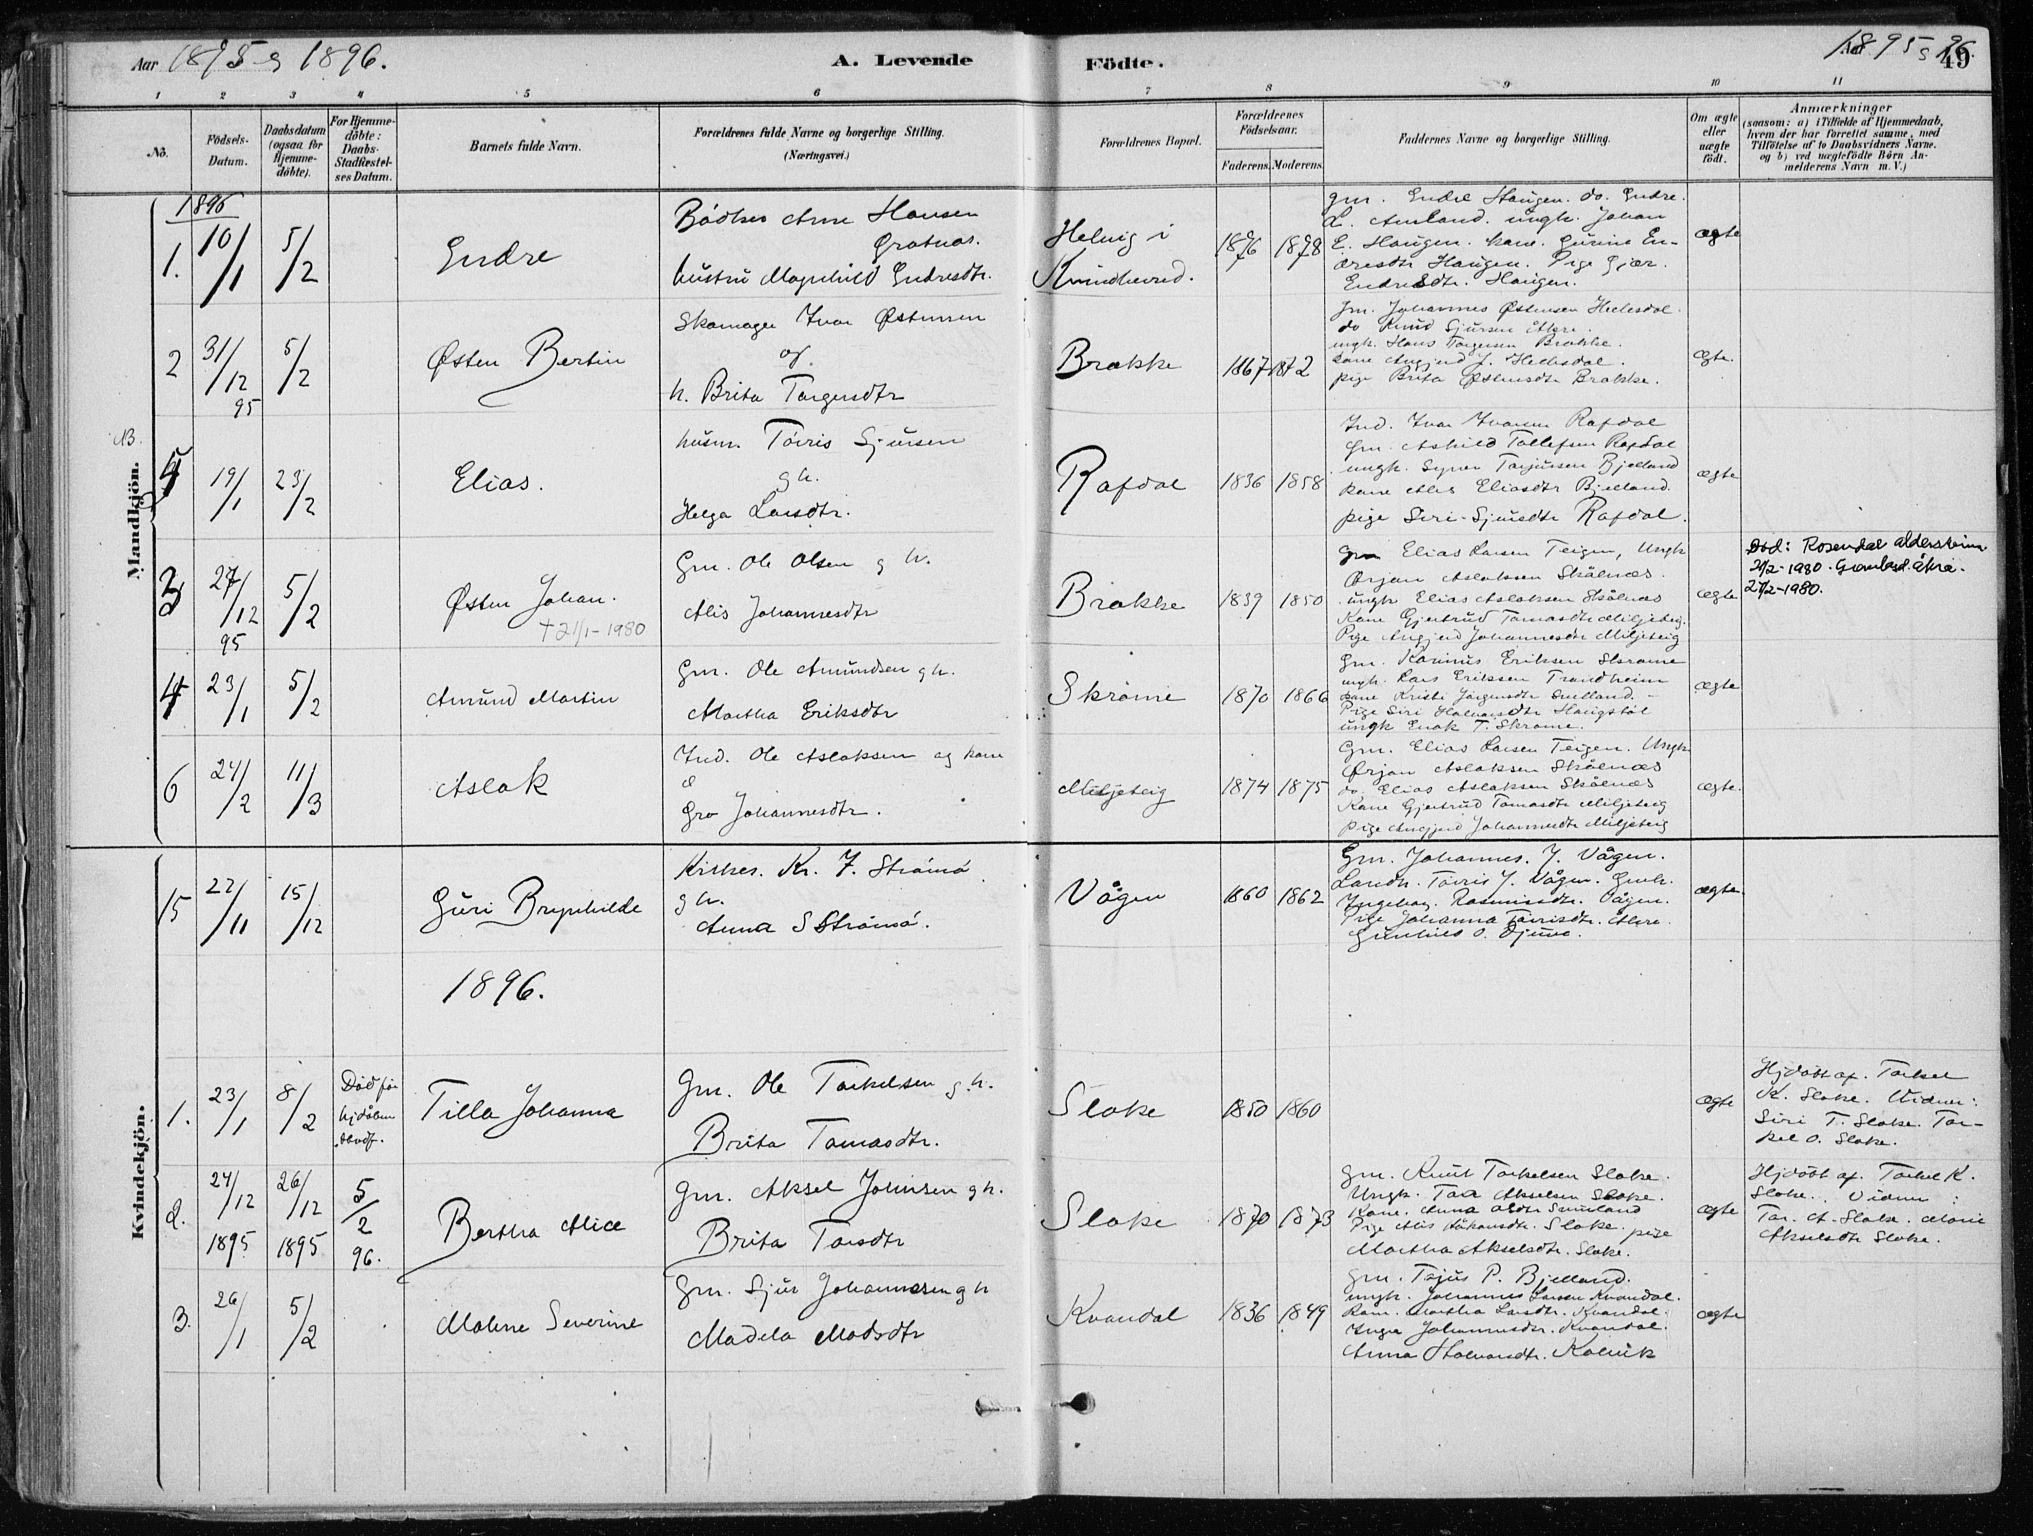 Aar 1895 og 1896.
A. Levende
Födte.
Aar 1895 og 96.
49
1 2 3 4 5 6 7 8 9 10 11
No.
Födsels-
Datum.
Daabsdatum
(ogsaa for
Hjemme-
döbte).
For Hjemme-
döbte:
Daabs-
Stadfæstel-
ses Datum.
Barnets fulde Navn.
Forældrenes fulde Navne og borgerlige Stilling.
(Næringsvei.)
Forældrenes Bopæl.
Forældrenes
Födselsaar.
Faderens. Moderens.
Faddernes Navne og borgerlige Stilling.
Om ægte
eller
uægte
födt.
Anmærkninger
(saasom: a) i Tilfælde af Hjemmedaab,
hvem der har forrettet samme, med
Tilföielse af to Daabsvidners Navne.
og b) ved uægtefödte Börn An-
melderens Navn m. V.)
Mandkjön.
1896
1. 10/1 5/2
Endre
Bødker Arne Hansen
hustru Magnhild Endresdtr.
Helvig i
Kvindherred.
1876 1878
gm. Endre Haugen. do. Endre
L. Amland. ungk. Johan
E. Haugen. kone. Gurine En-
dresdtr Haugen. Pige Gjær.
Endresdtr. Haugen.
ægte
2 31/12 95 5/2
Østen Bertin
Skomager Ivar Østensen
og
h. Brita Torgersdtr
Brakke
1867 1872
gm. Johannes Østensen
do Knud Sjursen Åkre.
ungk. Hans Torgersen Brakke.
pige Brita Østensdtr Brakke.
ægte.
NB.
5 19/1 23/2
Elias.
husm. Tørris Sjursen
g h.
Helga Larsdtr.
Rafdal
1836 1858
Ind. Ivar Ivarsen Rafdal
gm. Askild Tollefsen Rafdal
ungk. Syver Tarjusen Bjelland
kone Alis Eliasdtr Bjelland.
pige Siri Sjursdtr Rafdal.
ægte
3 27/12 95 5/2
Østen Johan.
† 21/1-1980
Gm. Ole Olsen g h.
Alis Johannesdtr
Brakke
1839 1850
gm Elias Larsen Teigen, Ungk
Ørjan Aslaksen Skålnæs.
ungk Elias Aslaksen Skålnæs
Kone Gjertrud Tomasdtr Miljeteig.
Pige Angjerd Johannesdtr Miljeteig
ægte
Død: Rosendal aldersheim
21/2-1980.
27/2-1980.
4 23/1 5/2
Amund Martin
Gm. Ole Amundsen g h.
Martha Eriksdtr
Skrome
1870 1866
gm. Rasmus Eriksen Skrome
ungk. Lars Eriksen Trondheim
Pige Siri Halvorsdtr Haugstøl
ungk Enok T. Skrome.
ægte
6 24/2 11/3
Aslak
Ind. Ole Aslaksen og kone
Gro Johannesdtr.
Miljeteig
1874 1875
Gm. Elias Larsen Teigen. Ungk
Ørjan Aslaksen Skålnæs
do. Elias Aslaksen Skålnæs
Kone Gjertrud Tomasdtr Miljeteig
pige Angjerd Johannesdtr Miljeteig
ægte.
Kvindekjön.
15 22/11 15/12
Guri Brynhilde
Kirkes. Kr. J. Strømø
g h.
Anna S Strømø.
Vågen
1860 1862
Gm. Johannes. J. Vågen.
Landh. Tørris J. Vågen. Gmk.
Ingeborg. Rasmusdtr. Vågen.
Pige Johanna Tørrisdtr. Åkre.
Gunhild O. Djuve.
ægte.
1896.
1. 23/1 8/2
Død før
hjdåben
Tilla Johanna
Gm. Ole Torkelsen g. h.
Brita Tomasdtr.
Sloke
1850 1860
ægte
Hjdøbt af. Torkel
K. Sloke. Vidner:
Siri T. Sloke. Tor-
kel O. Sloke.
2. 24/12 1895 26/12 1895 5/2 96.
Bertha Alice
Gm. Aksel Johnsen g h.
Brita Torsdtr
Sloke
1870 1873
Gm. Knut Torkelsen Sloke.
Ungk. Tor Akselsen Sloke.
Pige Alis Håkonsdtr. Sloke. pige
Martha Akselsdtr. Sloke.
ægte
Hjdøbt af Torkel K.
Sloke. Vidner:
Tor. A. Sloke. Marie
Akselsdtr Sloke.
3. 26/1 5/2
Malene Severine
Gm. Sjur Johannesen g h
Madela Madsdtr
Kvandal
1836 1849
Gm. Tajus P. Bjelland.
ungk. Johannes Larsen Kvandal.
Kone. Martha Larsdtr. Kvandal.
Inga Johannesdtr. Kvandal.
Anna Halvorsdtr. Kalvik
ægte